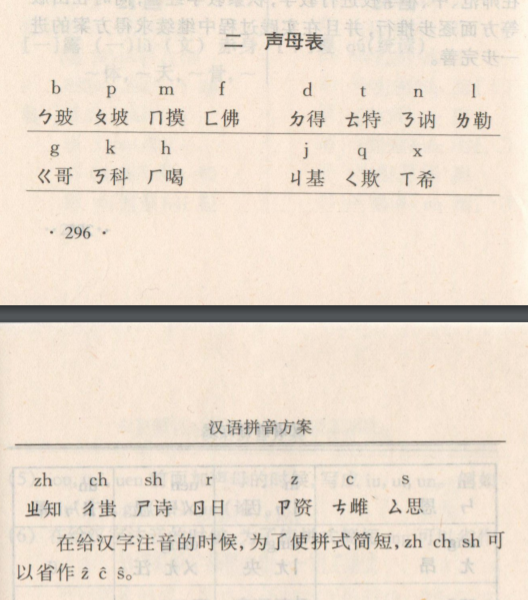 二 声母表
b p m f d t n l
ㄅ玻 ㄆ坡 ㄇ摸 ㄈ佛 ㄉ得 ㄊ特 ㄋ讷 ㄌ勒
g k h j q x
ㄍ哥 ㄎ科 ㄏ喝 ㄐ基 ㄑ欺 ㄒ希
· 296 ·
汉语拼音方案
zh ch sh r z c s
ㄓ知 ㄔ蚩 ㄕ诗 ㄖ日 ㄗ资 ㄘ雌 ㄙ思
在给汉字注音的时候,为了使拼式简短,zh ch sh 可
以省作 ẑ ĉ ŝ。